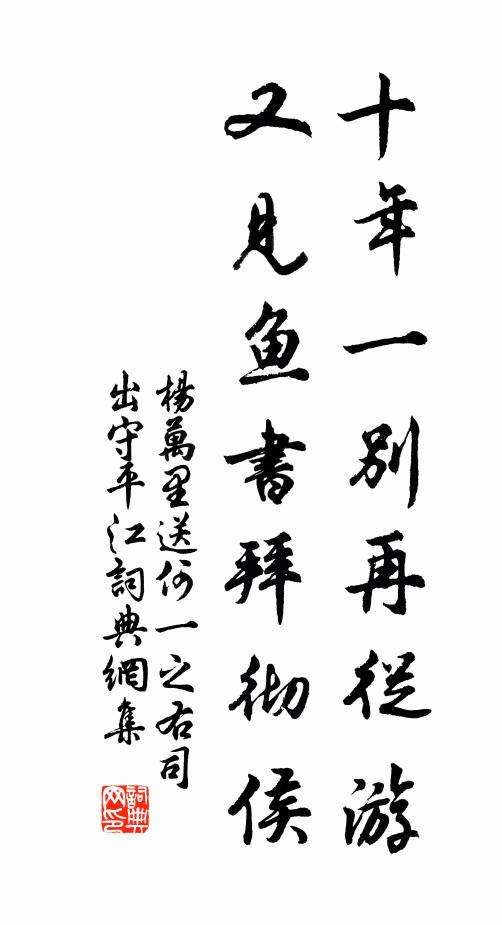 十年一別再從游
又見鱼書拜彻侯
楊萬里送何一之右司
出守平江詞典網集
詞典
网印